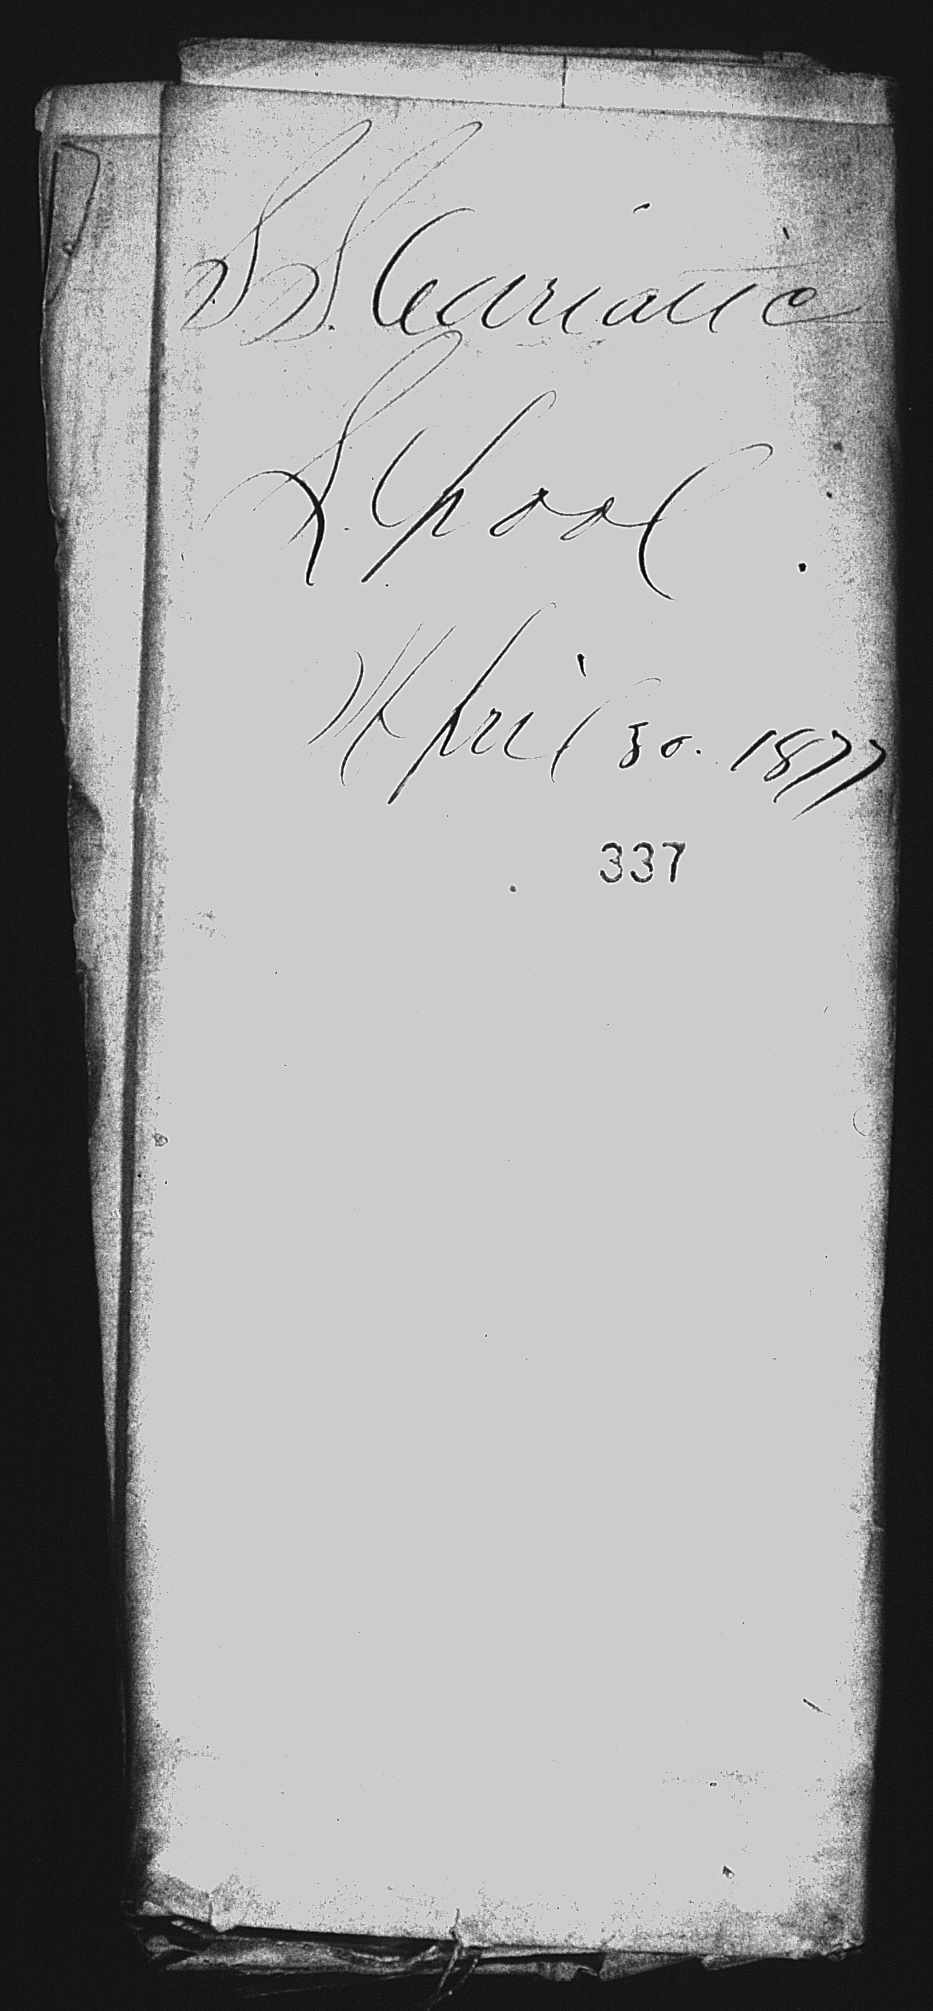 S S. Adriatic
L. Pool
April 30. 1877
337